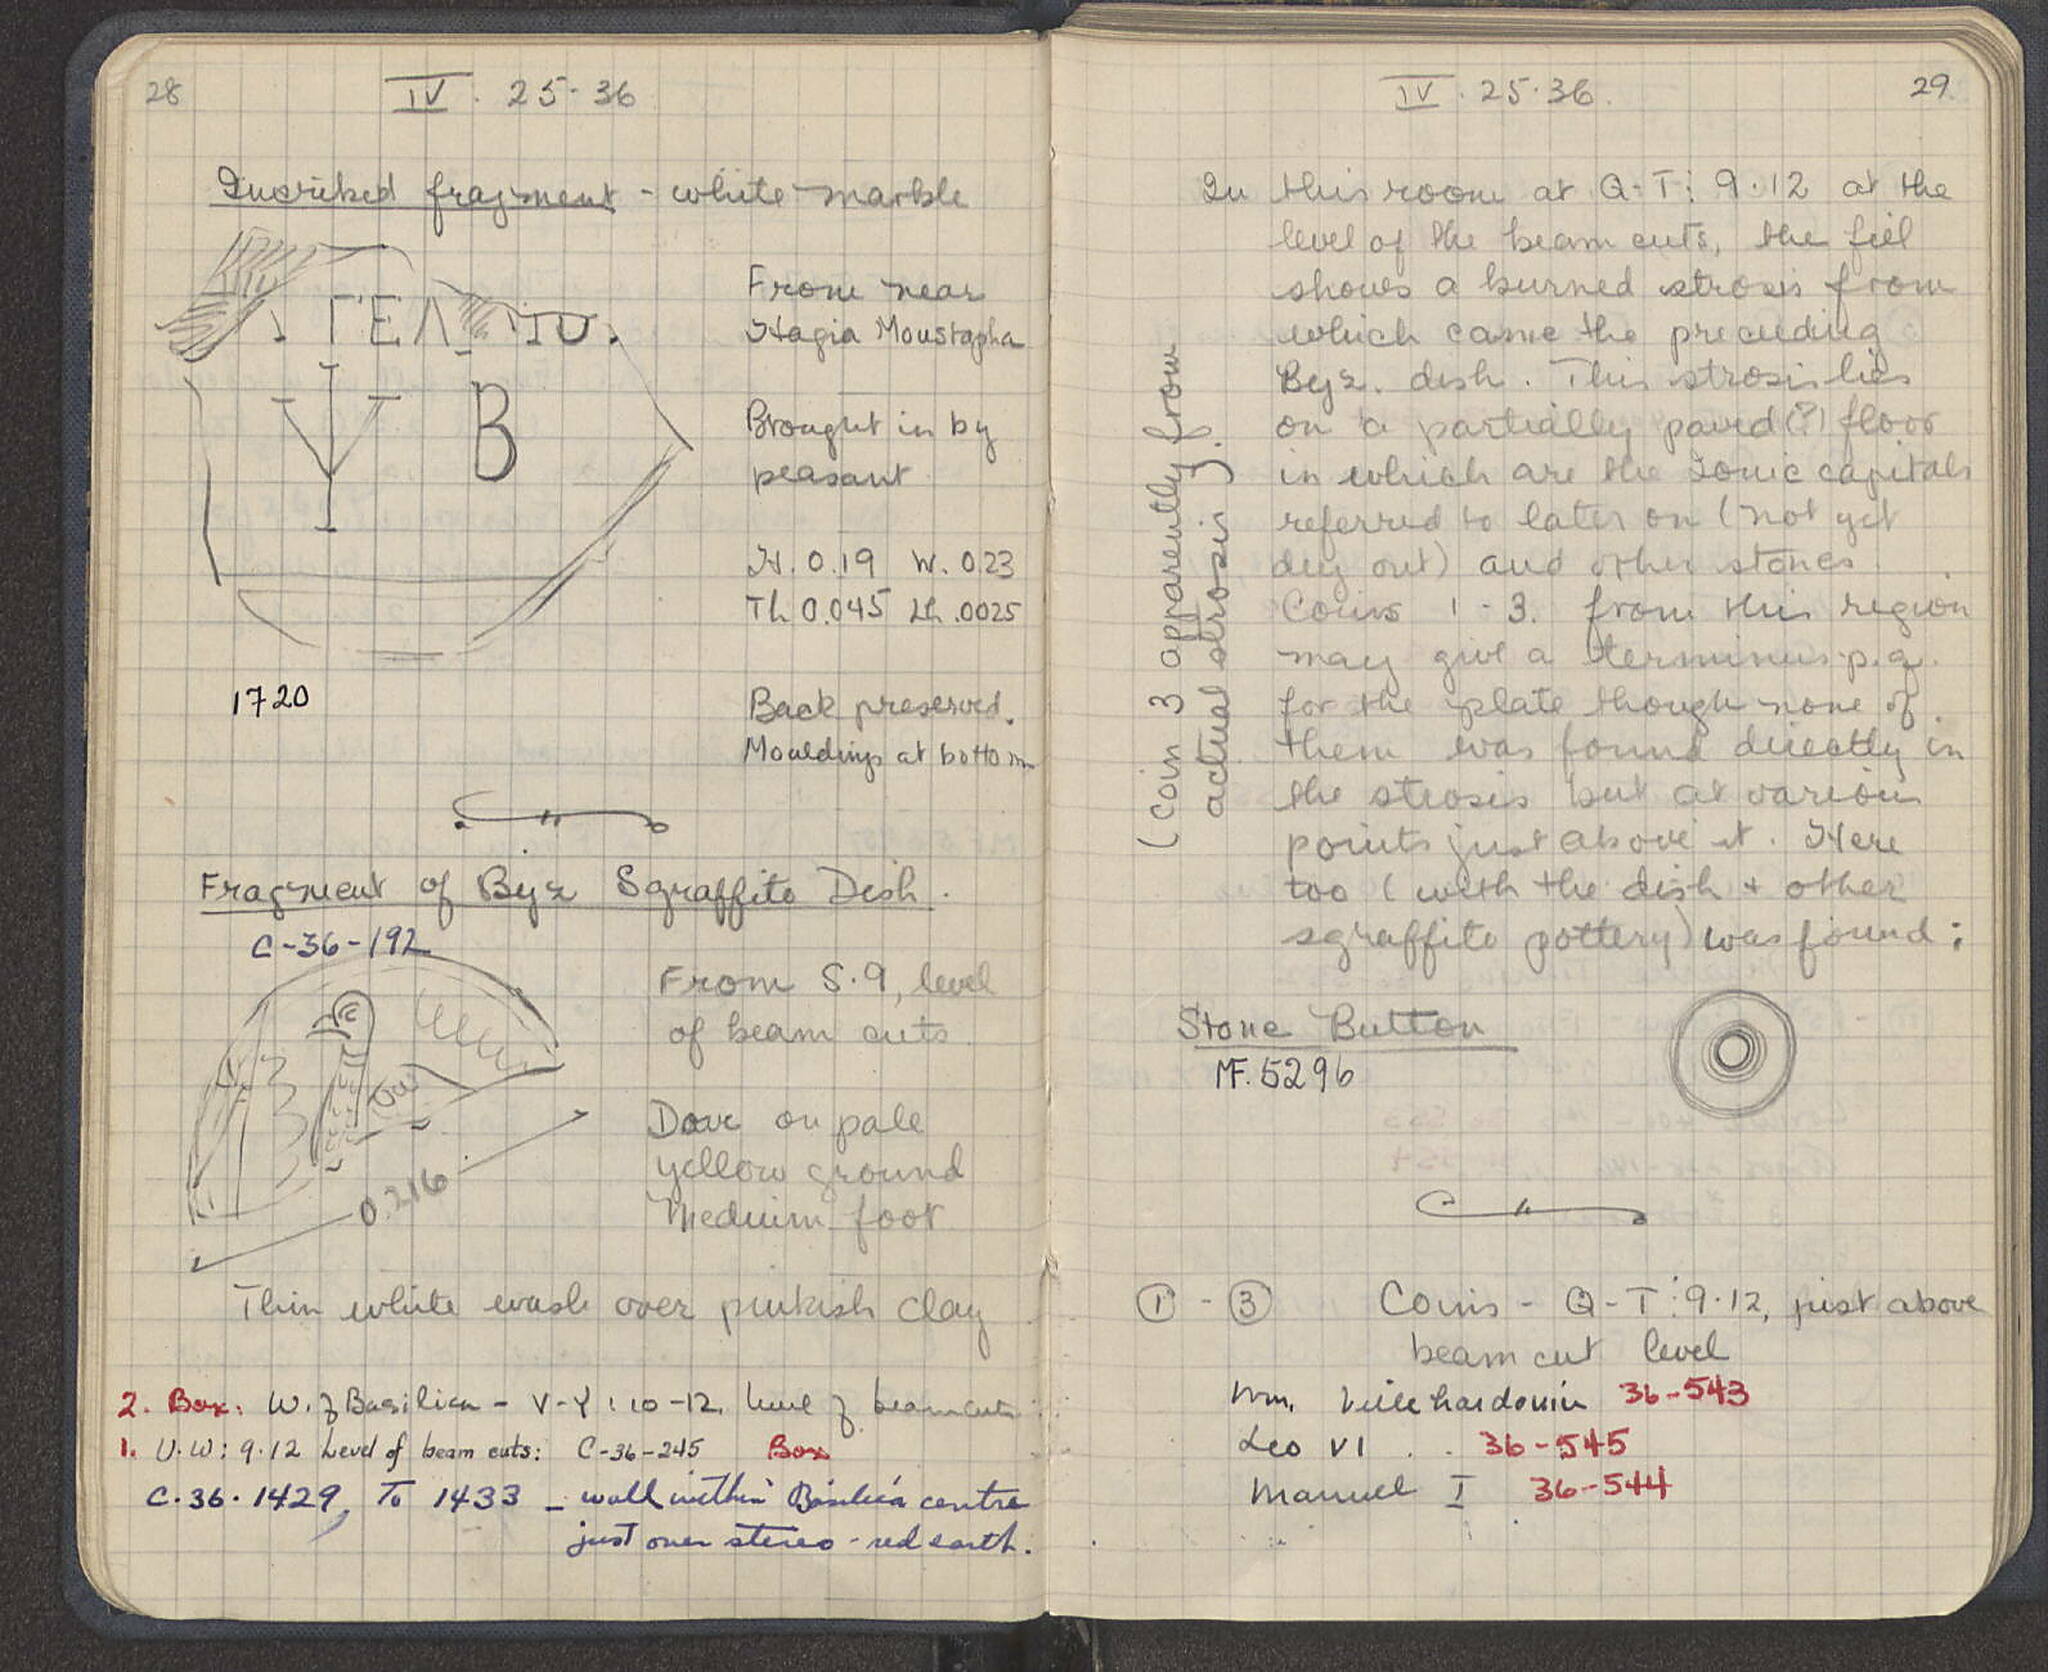 28
IV. 25-36
Inscribed fragment - white marble
ΓΕΛ
Ψ Β
From near
Hagia Moustapha
Brought in by
peasant
H. 0.19 W. 0.23
Th 0.045 Lh .0025
1720
Back preserved.
Mouldings at bottom
Fragment of Byz Sgraffito Dish.
C-36-192
From S.9, level
of beam cuts
Dove on pale
yellow ground
Medium foot
0.216
Thin white wash over pinkish clay
2. Box: W. of Basilica - V-Y: 10-12. level of beam cuts
1. U.W: 9.12 Level of beam cuts: C-36-245 Box
C.36.1429, To 1433 - wall within Basilica centre
just over stereo - red earth.
IV. 25.36.
29
In this room at Q-T: 9.12 at the
level of the beam cuts, the fill
shows a burned strosis from
which came the preceeding
Byz. dish. This strosis lies
on a partially paved(?) floor
in which are the Ionic capitals
referred to later on (not yet
dug out) and other stones.
Coins 1-3. from this region
may give a terminus p.q.
for the plate though none of
them was found directly in
the strosis but at various
points just above it. Here
too (with the dish + other
sgraffito pottery) was found:
(coin 3 apparently from
actual strosis).
Stone Button
MF. 5296
① - ③ Coins - Q-T: 9.12, just above
beam cut level
Wm. Villehardouin 36-543
Leo VI . . 36-545
Manuel I 36-544